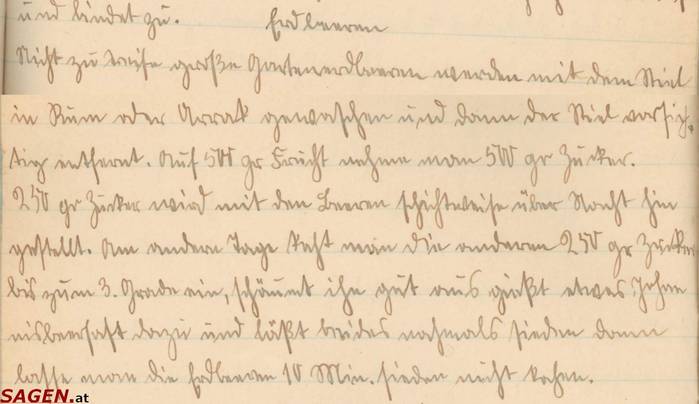 und bindet zu. Erdbeeren
Nicht zu reife große Gartenerdbeeren werden mit dem Stiel
in Rum oder Arrak gewaschen und dann der Stiel vorsich-
tig entfernt. Auf 500 gr Frucht nehme man 500 gr Zucker.
250 gr Zucker wird mit den Beeren schichtweise über Nacht hin
gestellt. Am andern Tage kocht man die anderen 250 gr Zucker
bis zum 3. Grade ein, schäumt ihn gut aus gießt etwas Johan
nisbeersaft dazu und läßt beides nochmals sieden dann
lasse man die Erdbeeren 10 Min. sieden nicht kochen.
SAGEN.at